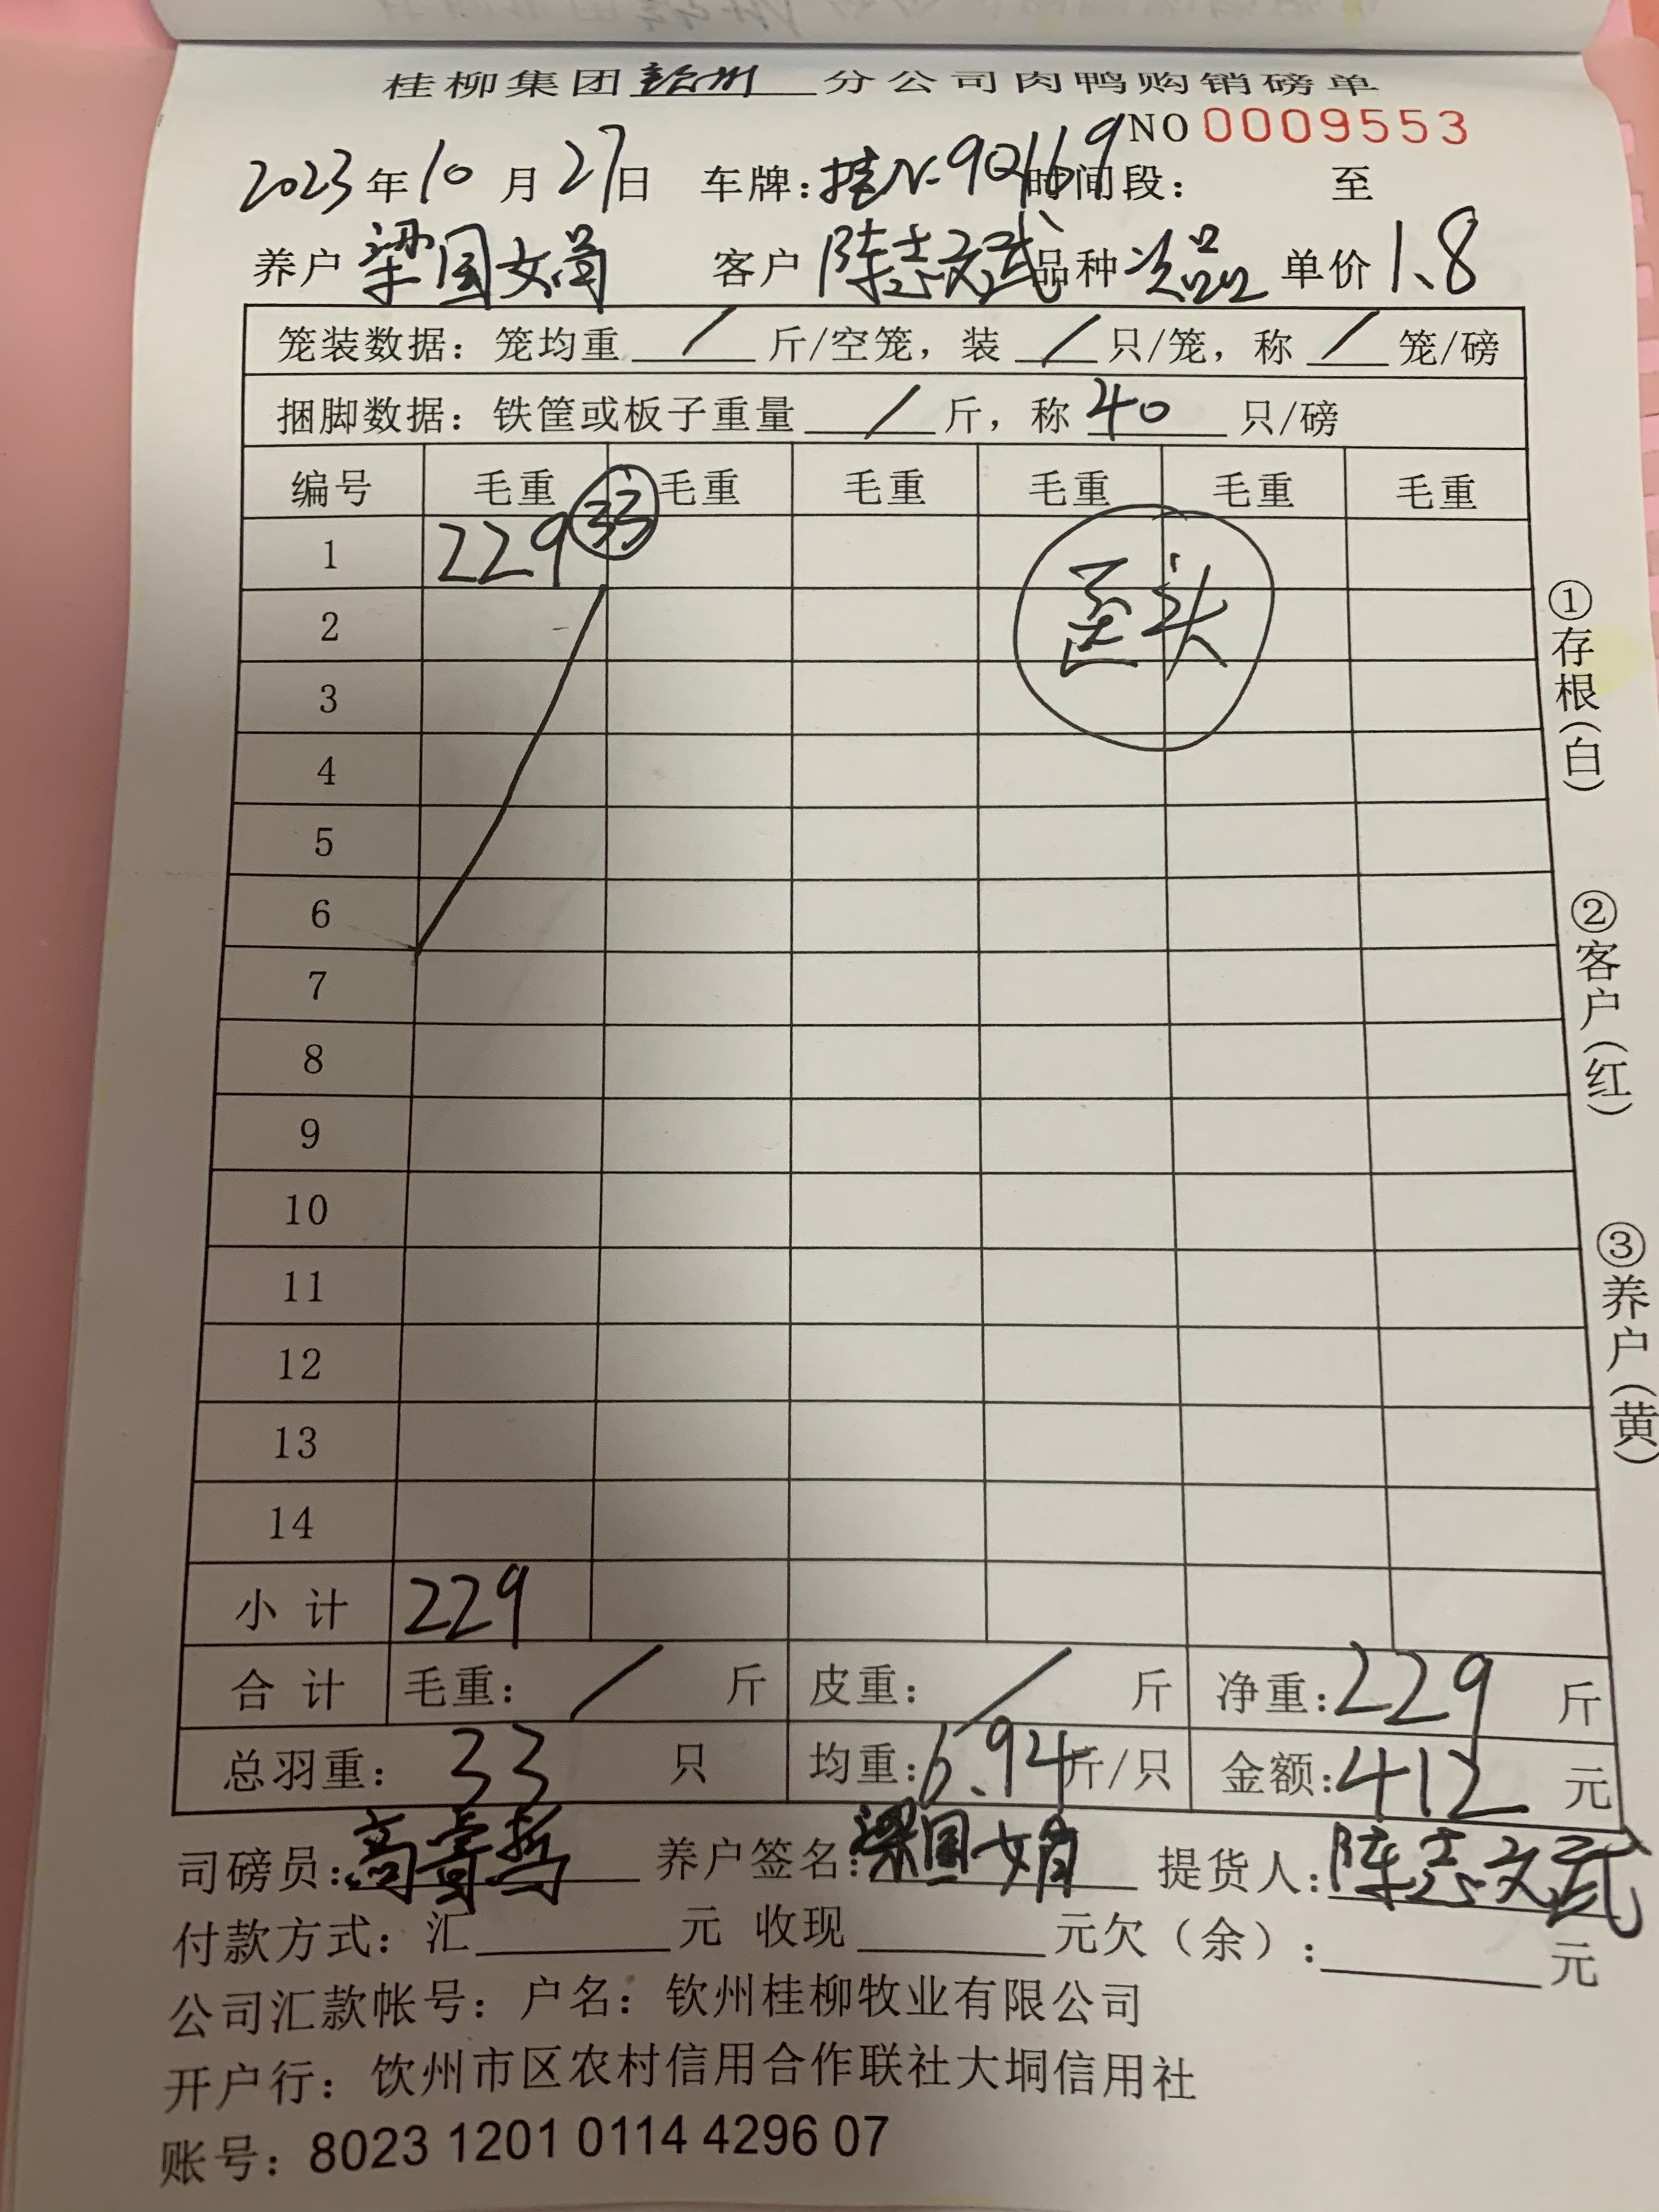 桂柳集团钦州分公司肉鸭购销磅单
NO 0009553
2023年10月27日 车牌：桂N-9Q169 时间段： 至
养户 梁国娟 客户 陈志斌 品种 次品 单价 1.8
笼装数据：笼均重 / 斤/空笼，装 / 只/笼，称 / 笼/磅
捆脚数据：铁筐或板子重量 / 斤，称 40 只/磅
编号 毛重 毛重 毛重 毛重 毛重 毛重
1 229 33
歪头
2
3
4
5
6
7
8
9
10
11
12
13
14
小计 229
合计 毛重： / 斤 皮重： / 斤 净重：229 斤
总羽重： 33 只 均重：6.94 斤/只 金额：412 元
司磅员：高 养户签名：梁国娟 提货人：陈志斌
付款方式：汇 元 收现 元欠（余）： 元
公司汇款帐号：户名：钦州桂柳牧业有限公司
开户行：钦州市区农村信用合作联社大垌信用社
账号：8023 1201 0114 4296 07
①存根（白）
②客户（红）
③养户（黄）